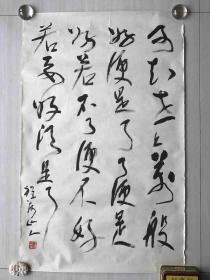 可知世上万般
好便是了了便是
好若不了便不好
若要好须是了